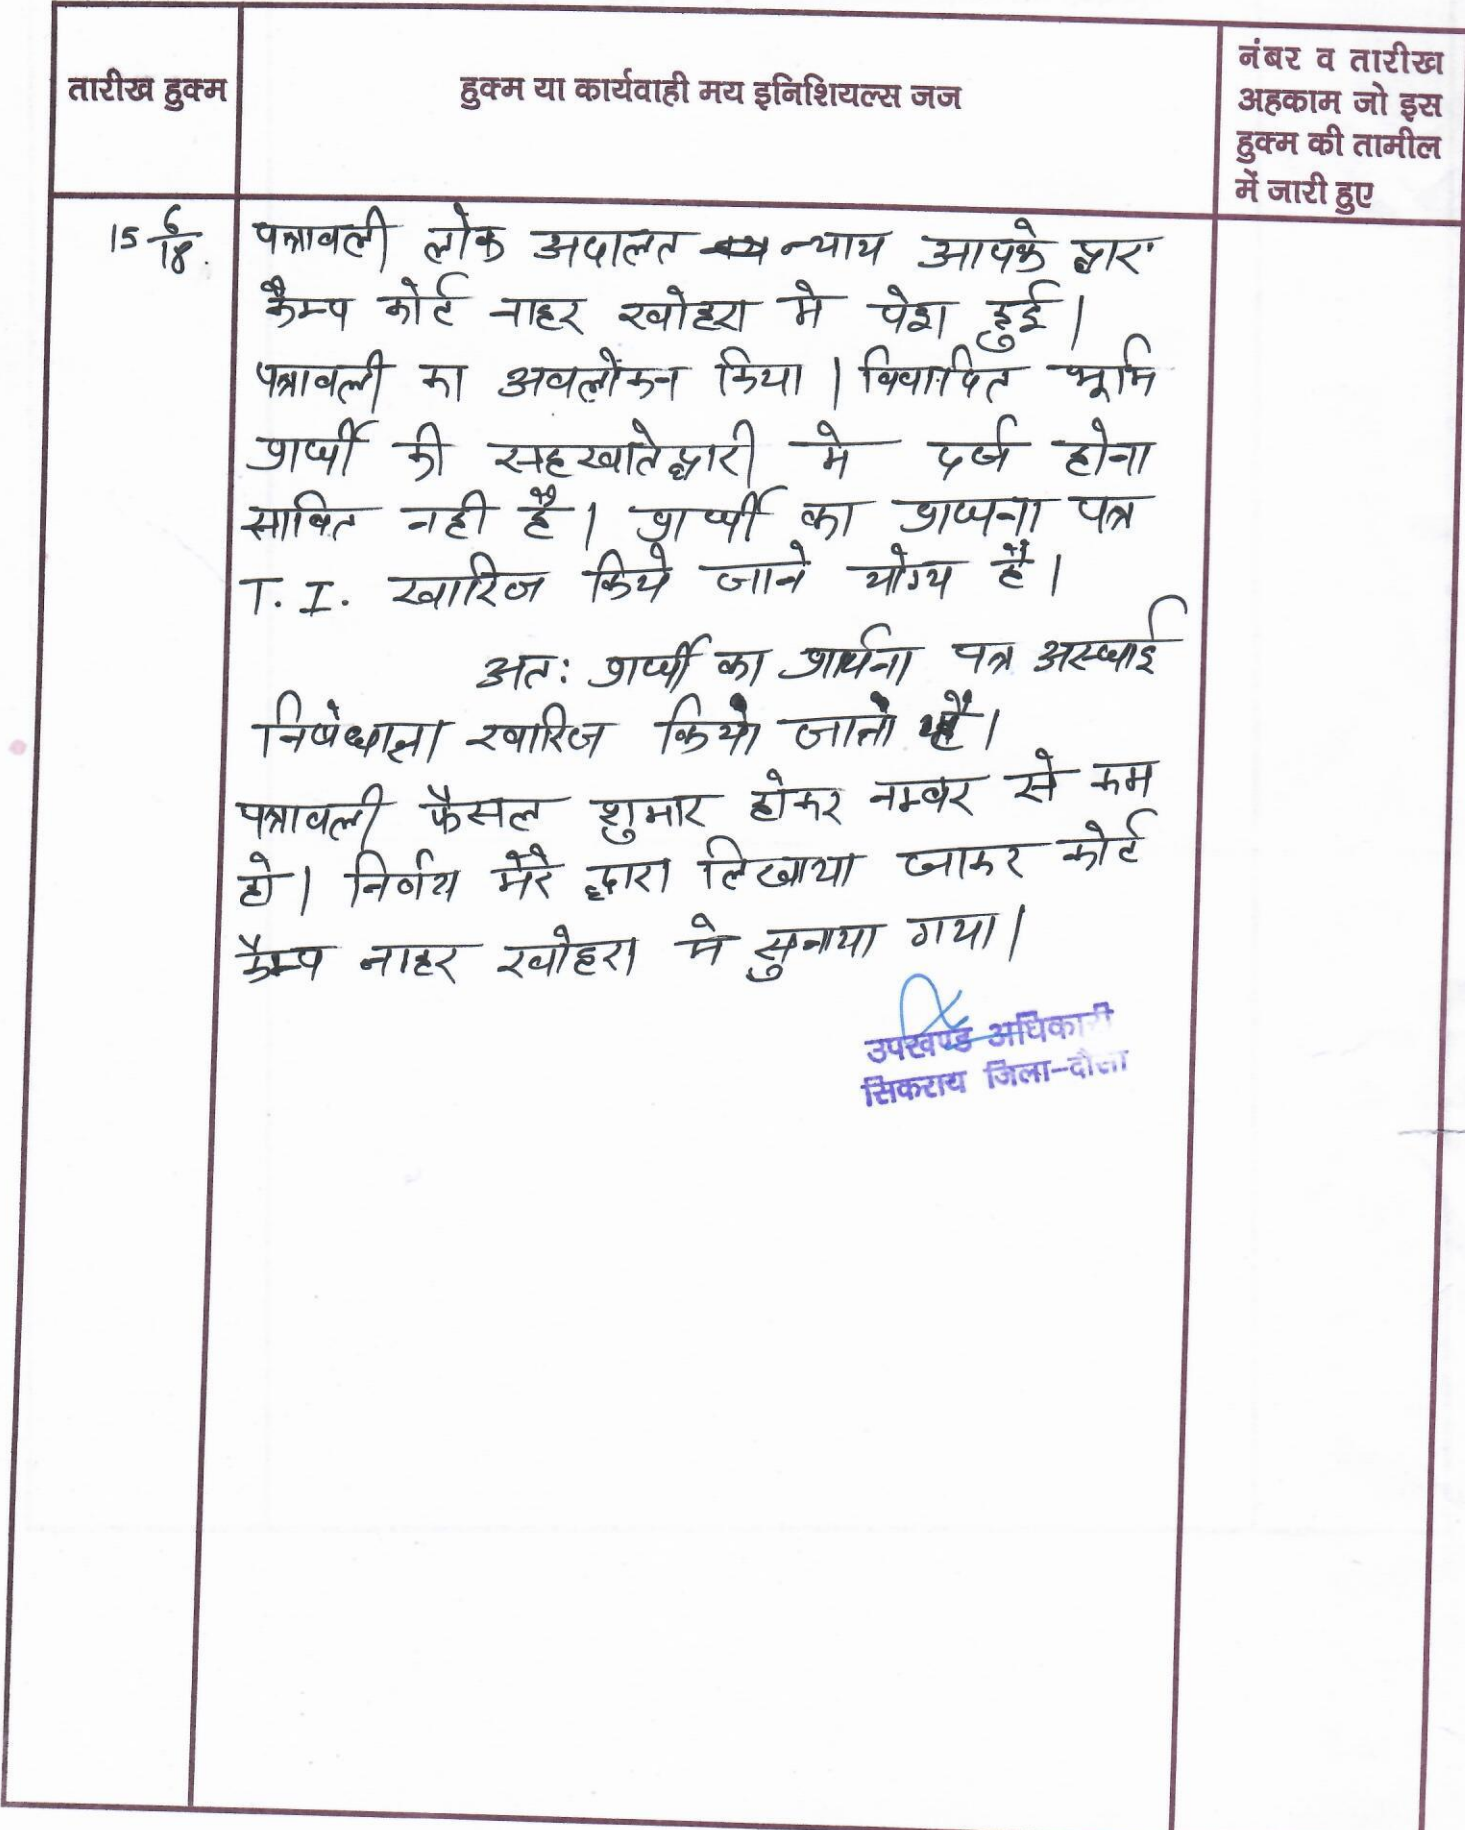 तारीख हुक्म
हुक्म या कार्यवाही मय इनिशियल्स जज
नंबर व तारीख
अहकाम जो इस
हुक्म की तामील
में जारी हुए
15 6/18.
पत्रावली लोक अदालत न्याय आपके द्वार
कैम्प कोर्ट नाहर खोहरा मे पेश हुई।
पत्रावली का अवलोकन किया। विवादित भूमि
प्रार्थी की सहखातेद्वारी मे दर्ज होना
साबित नही है। प्रार्थी का प्राथना पत्र
T. I. खारिज किये जाने योग्य है।
अत: प्रार्थी का प्रार्थना पत्र अस्थाई
निषेधाज्ञा खारिज किया जाता है।
पत्रावली फैसल शुमार होकर नम्बर से कम
हो। निर्णय मेरे द्वारा लिखाया जाकर कोर्ट
कैम्प नाहर खोहरा मे सुनाया गया।
उपखण्ड अधिकारी
सिकराय जिला-दौसा